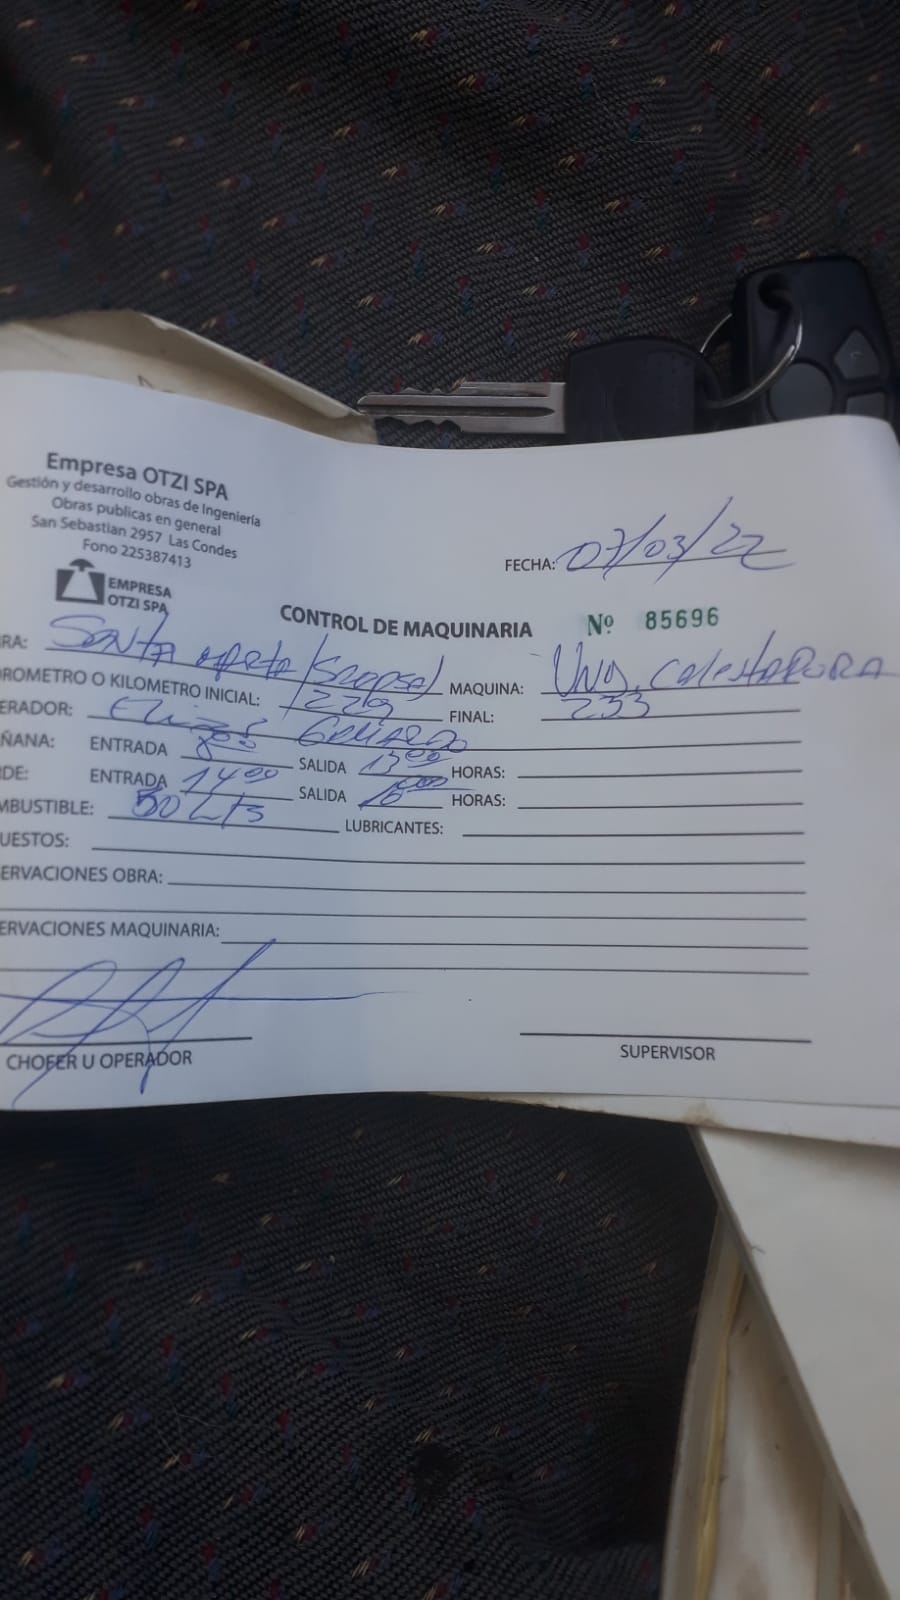 Empresa OTZI SPA
Gestión y desarrollo obras de Ingeniería
Obras publicas en general
San Sebastian 2957 Las Condes
Fono 225387413
EMPRESA
OTZI SPA
FECHA: 07/03/22
CONTROL DE MAQUINARIA Nº 85696
RA: SANTA MARTA MAQUINA:
OROMETRO O KILOMETRO INICIAL: FINAL: 233
ERADOR:
ÑANA: ENTRADA 8 00 SALIDA 13 00 HORAS:
DE: ENTRADA 14 00 SALIDA HORAS:
MBUSTIBLE: 50 Lts LUBRICANTES:
UESTOS:
ERVACIONES OBRA:
ERVACIONES MAQUINARIA:
CHOFER U OPERADOR SUPERVISOR